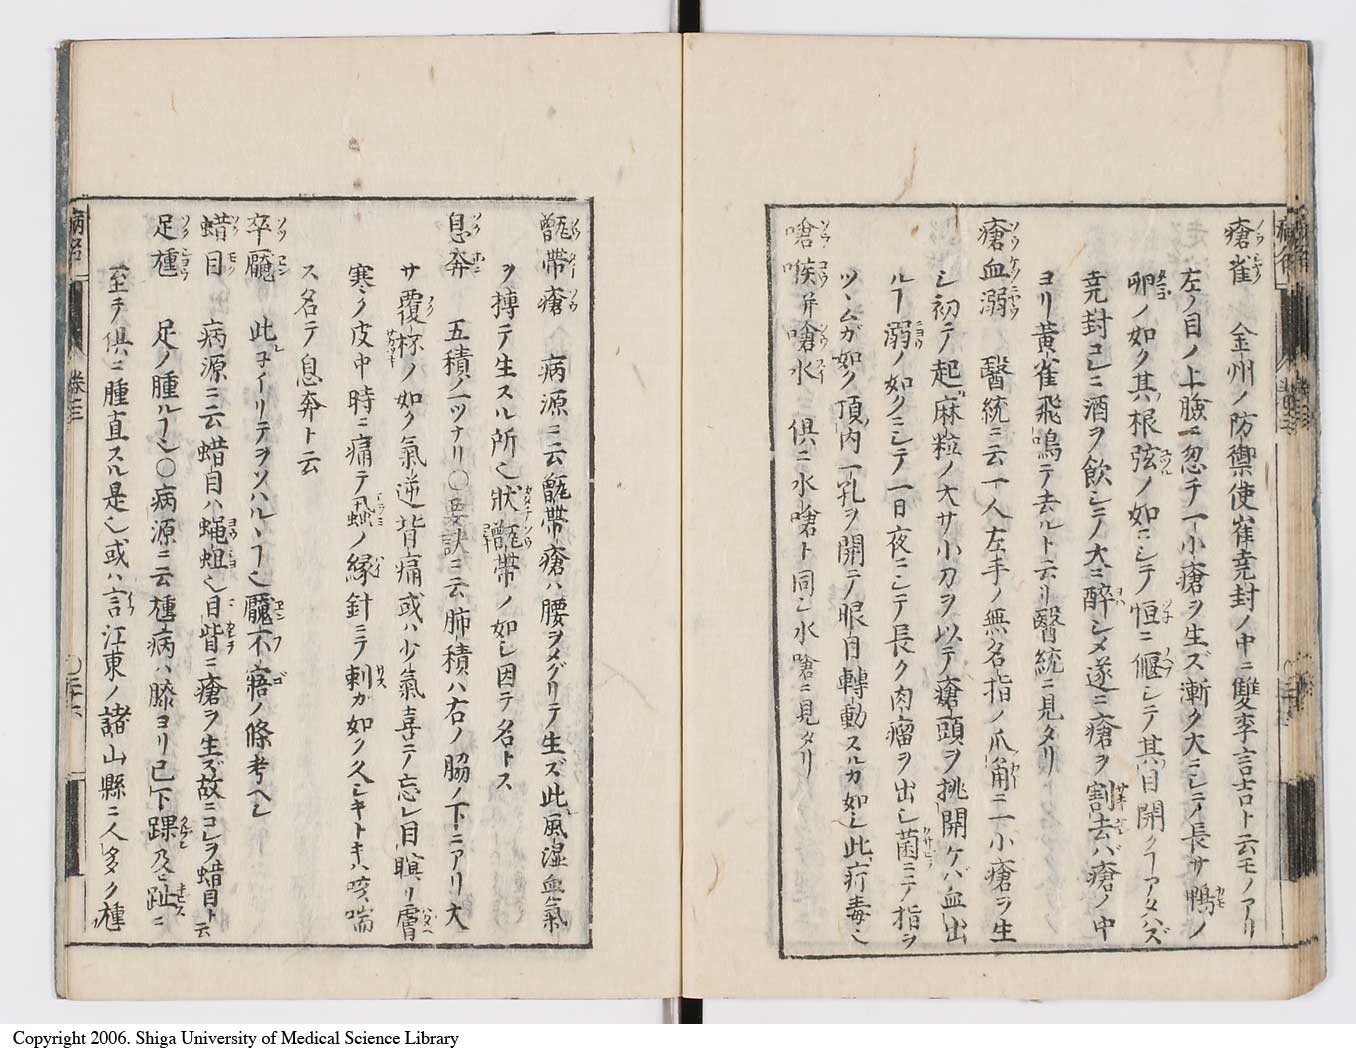 瘡雀 金州ノ防禦使崔堯封ノ中ニ雙李言吉ト云モノアリ
左ノ目ノ上瞼ニ忽チ一小瘡ヲ生ズ漸ク大ニシテ長サ鴨ノ
卵ノ如ク其根弦ノ如ニシテ恒ニ偃シテ其目開クヿアタハズ
堯封コレニ酒ヲ飲シメ大ニ醉シメ遂ニ瘡ヲ割去バ瘡ノ中
ヨリ黄雀飛鳴テ去ルト云リ醫統ニ見タリ
瘡血溺 醫統ニ云一人左手ノ無名指ノ爪角ニ一小瘡ヲ生
シ初テ起麻粒ノ大サ小刀ヲ以テ瘡頭ヲ挑開ケバ血出
ルヿ溺ノ如クニシテ一日夜ニシテ長ク肉瘤ヲ出シ菌ニテ指ヲ
ツヽムガ如ク頂内一孔ヲ開テ眼自轉動スルカ如シ此疔毒也
嗆喉并嗆水 倶ニ水嗆ト同シ水嗆ニ見タリ
甑帶瘡 病源ニ云甑帶瘡ハ腰ヲメグリテ生ズ此風湿血氣
ヲ搏テ生スル所也狀甑帶ノ如シ因テ名トス
息奔 五積ノ一ツナリ○要訣ニ云肺積ハ右ノ脇ノ下ニアリ大
サ覆杯ノ如ク氣逆背痛或ハ少氣喜テ忘レ目瞑リ膚
寒ク皮中時ニ痛テ虱ノ縁針ニテ刺カ如ク久シキトキハ咳喘
ス名テ息奔ト云
卒魘 此ヨイリテヲソハルヽヿ也魘不寤ノ條考ヘシ
蜡目 病源ニ云蜡目ハ蝇蛆也目眥ニ瘡ヲ生ズ故ニコレヲ蜡目ト云
足尰 足ノ腫ルヿ也○病源ニ云尰病ハ膝ヨリ已下踝及ヒ趾ニ
至テ倶ニ腫直スル是也或ハ言江東ノ諸山縣ニ人多ク尰
病名 卷三
Copyright 2006. Shiga University of Medical Science Library